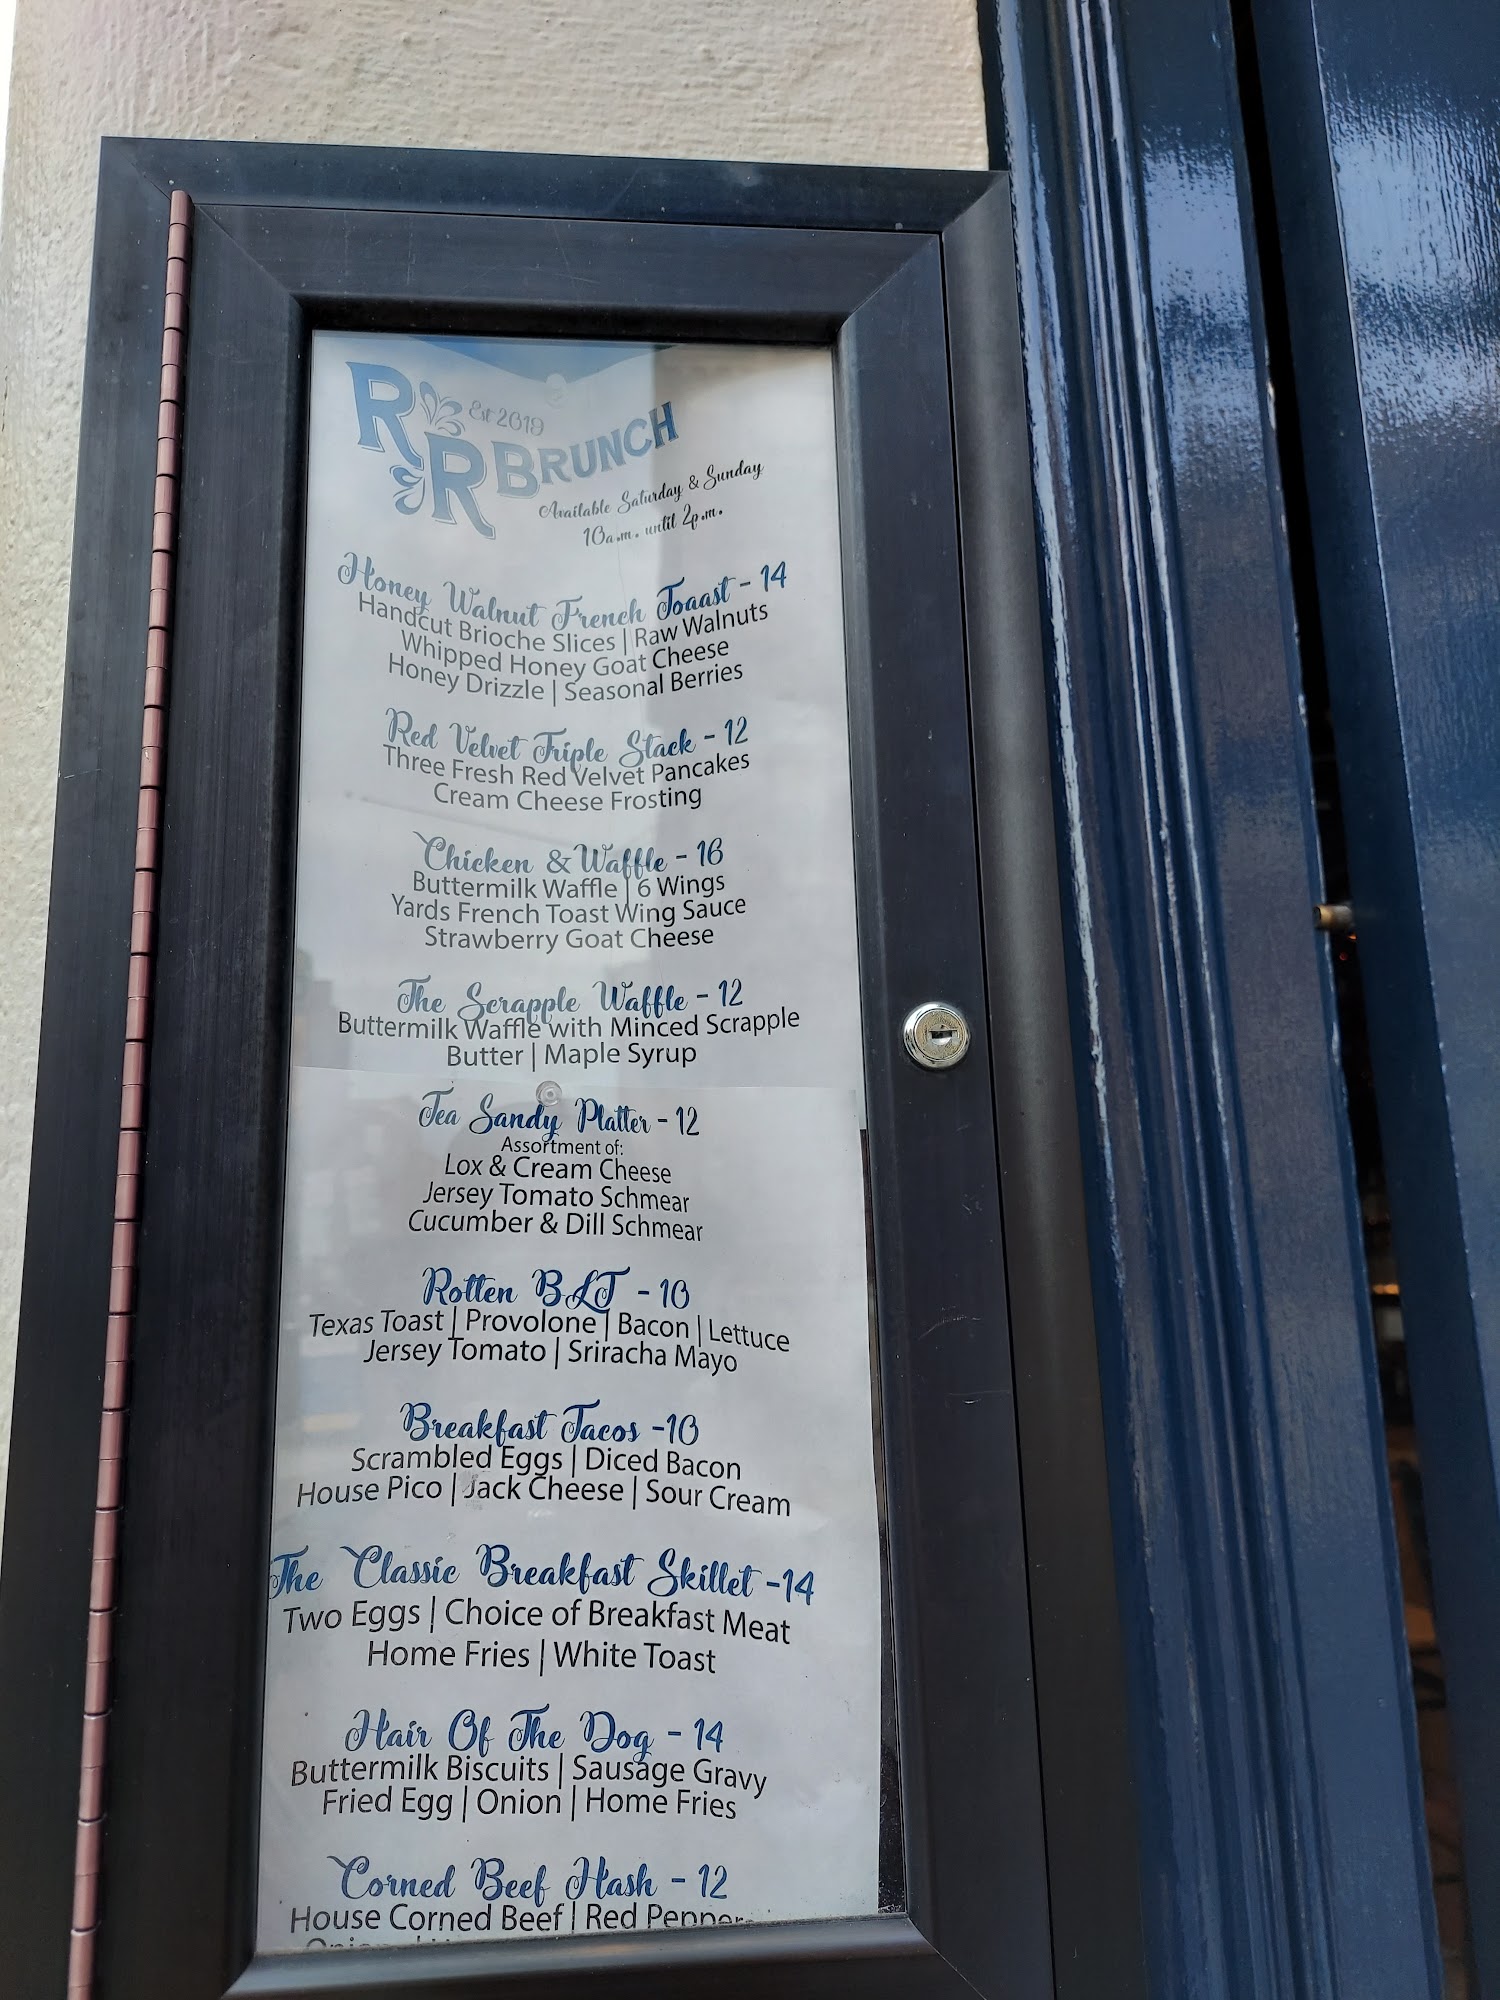 RR Est 2019 BRUNCH
Available Saturday & Sunday
10a.m. until 2p.m.
Honey Walnut French Toaast - 14
Handcut Brioche Slices | Raw Walnuts
Whipped Honey Goat Cheese
Honey Drizzle | Seasonal Berries
Red Velvet Triple Stack - 12
Three Fresh Red Velvet Pancakes
Cream Cheese Frosting
Chicken & Waffle - 16
Buttermilk Waffle | 6 Wings
Yards French Toast Wing Sauce
Strawberry Goat Cheese
The Scrapple Waffle - 12
Buttermilk Waffle with Minced Scrapple
Butter | Maple Syrup
Tea Sandy Platter - 12
Assortment of:
Lox & Cream Cheese
Jersey Tomato Schmear
Cucumber & Dill Schmear
Rotten BLT - 10
Texas Toast | Provolone | Bacon | Lettuce
Jersey Tomato | Sriracha Mayo
Breakfast Tacos -10
Scrambled Eggs | Diced Bacon
House Pico | Jack Cheese | Sour Cream
The Classic Breakfast Skillet -14
Two Eggs | Choice of Breakfast Meat
Home Fries | White Toast
Hair Of The Dog - 14
Buttermilk Biscuits | Sausage Gravy
Fried Egg | Onion | Home Fries
Corned Beef Hash - 12
House Corned Beef | Red Pepper